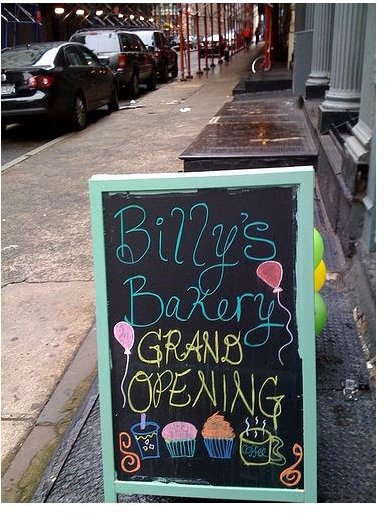 Billy's
Bakery
GRAND
OPENING
coffee